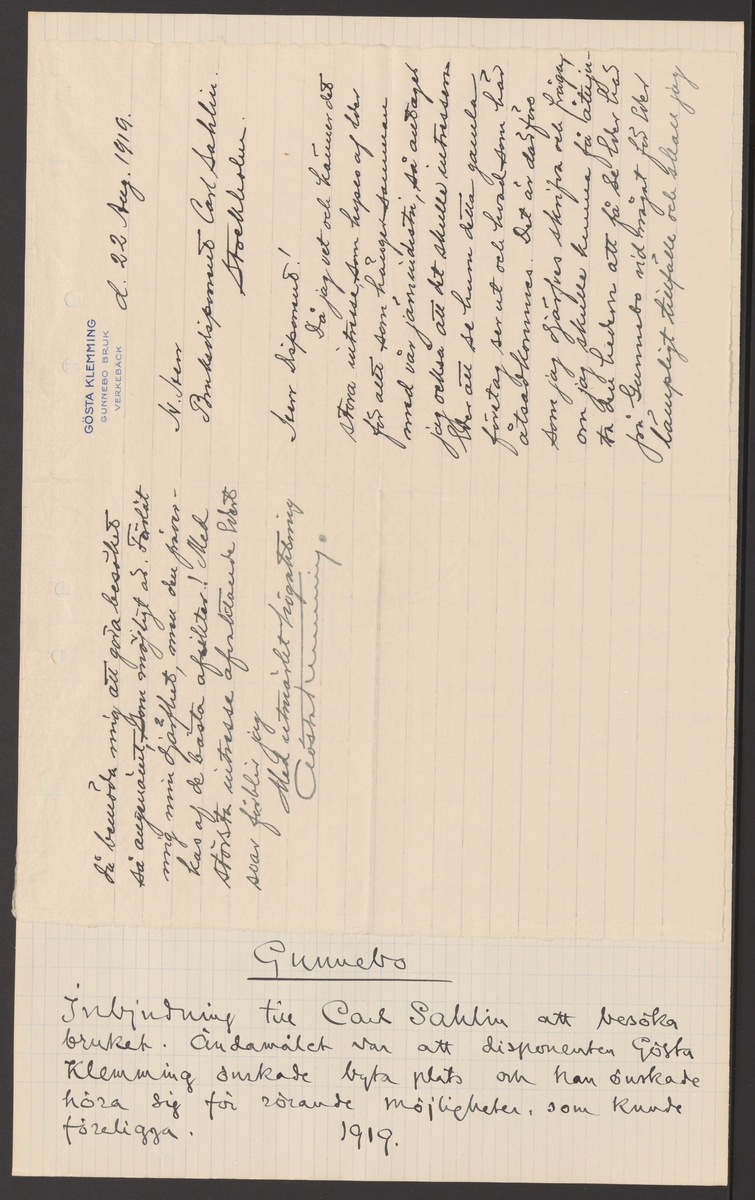 GÖSTA KLEMMING
GUNNEBO BRUK
VERKEBÄCK
d. 22 Aug. 1919.
H. Herr
Bruksdisponent Carl Sahlin.
Stockholm.
Herr Disponent!
Då jag vet och känner det
stora intresse, som hyses af Eder
för allt som hänger samman
med vår järnindustri, så antager
jag också att det skulle intressera
Eder att se hur detta gamla
företag ser ut och hvad som här
åstadkommes. Det är därför
som jag djärfves skrifva och fråga,
om jag skulle kunna få åtnju-
ta den hedern att få se Eder här
på Gunnebo vid något för Eder
lämpligt tillfälle och skall jag
då bemöda mig att göra besöket
så angenämt, som möjligt är. Förlåt
mig min djärfhet, men den påver-
kas af de bästa afsikter! Med
största intresse afvaktande Edert
svar förblir jag
Med utmärkt högaktning
Gösta Klemming.
Gunnebo
Inbjudning till Carl Sahlin att besöka
bruket. Ändamålet var att disponenten Gösta
Klemming önskade byta plats och han önskade
höra sig för rörande möjligheter, som kunde
föreligga. 1919.